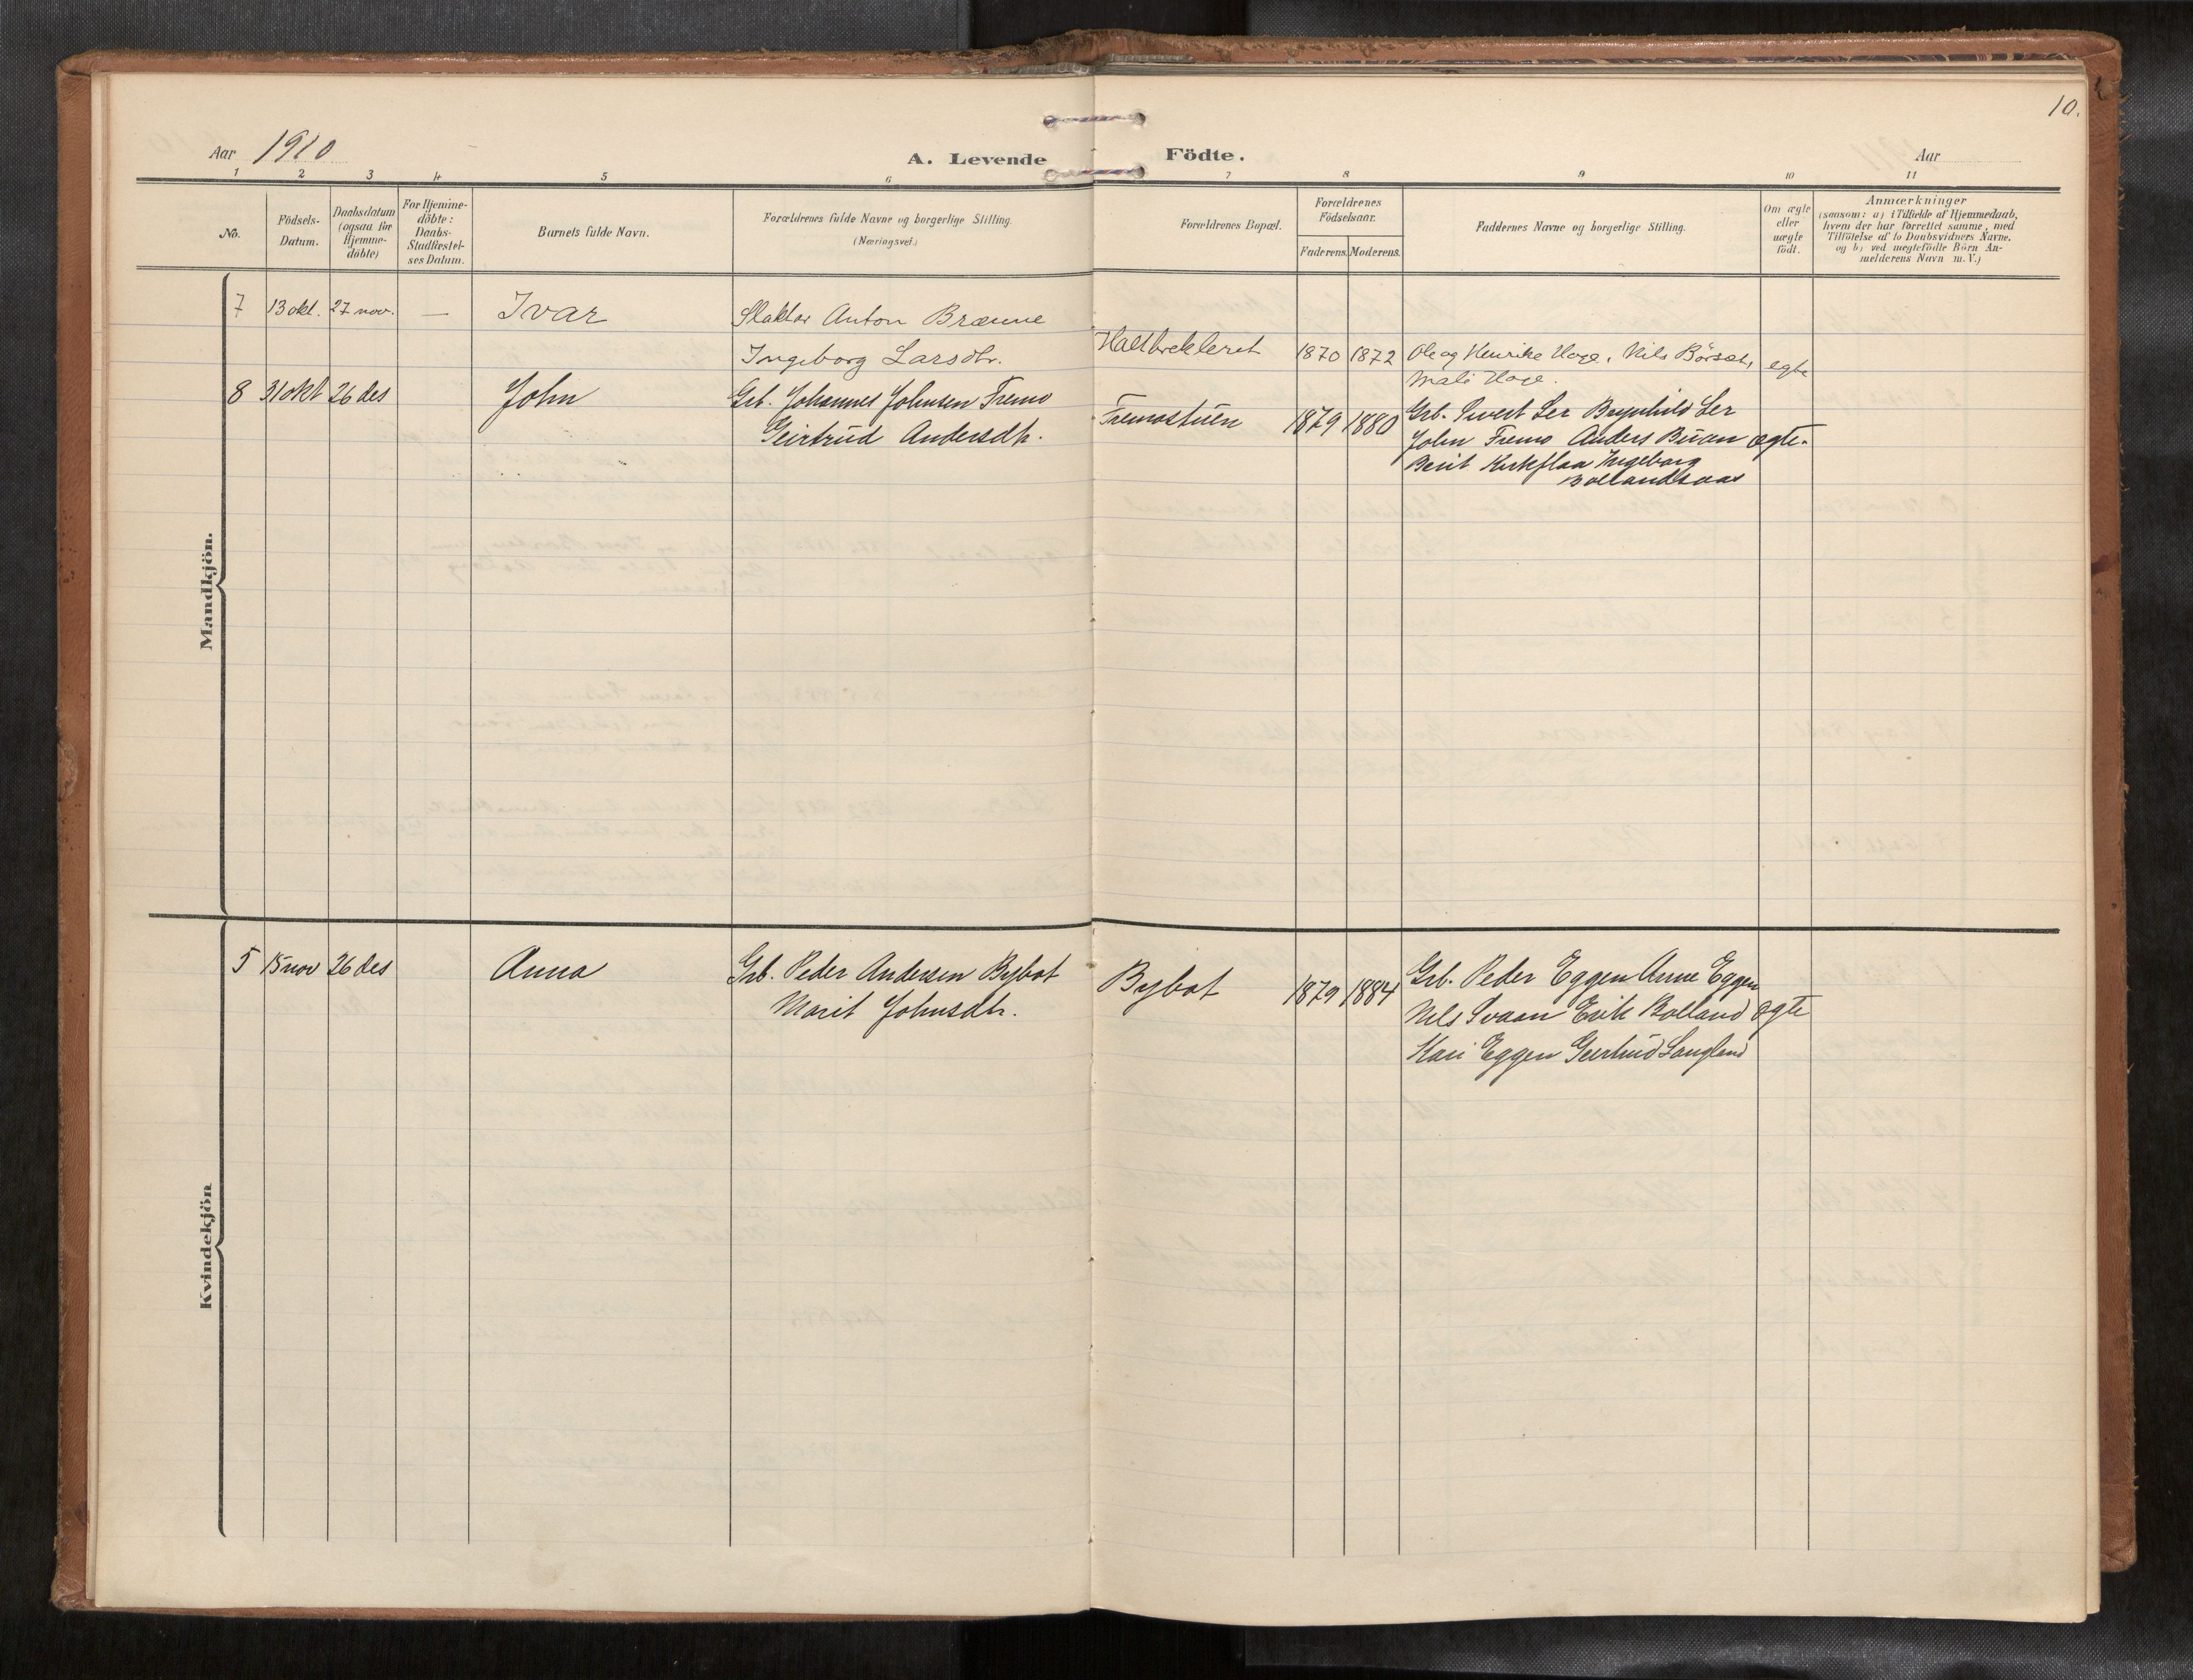 10.
Aar 1910
A. Levende Födte.
Aar
1 2 3 4 5 6 7 8 9 10 11
No.
Födsels-
Datum.
Daabsdatum
(ogsaa for
Hjemme-
döbte)
For Hjemme-
döbte:
Daabs-
Stadfæstel-
ses Datum.
Barnets fulde Navn.
Forældrenes fulde Navne og borgerlige Stilling.
(Næringsvei.)
Forældrenes Bopæl.
Forældrenes
Födselsaar.
Faderens. Moderens.
Faddernes Navne og borgerlige Stilling.
Om ægte
eller
uægte
födt.
Anmærkninger
(saasom: a) i Tilfælde af Hjemmedaab,
hvem der har forrettet samme, med
Tilföielse af to Daabsvidners Navne,
og b) ved uægtefödte Börn An-
melderens Navn m. V.)
Mandkjön.
7 13 okt. 27 nov. — Ivar Slakter Anton Brænne
Ingeborg Larsdtr.
1870 1872 Ole og Henrike Hage, Nils Börset, egte
Mali Hage.
8 31 okt 26 des John Grb. Johannes Johnsen Fremo
Geirtrud Andersdtr.
Fremostuen 1879 1880 Grb. Sivert Ler Brynhild Ler
John Fremo Anders Buan ægte.
Berit Kirkflaa Ingeborg
Bollandsaas
Kvindekjön
5 15 nov 26 des Anna Grb. Peder Andersen Bybot
Marit Johnsdtr.
Bybot 1879 1884 Grb. Peder Eggen Anne Eggen
Nils Svaan Erik Bolland ægte
Kari Eggen Geirtrud Langland